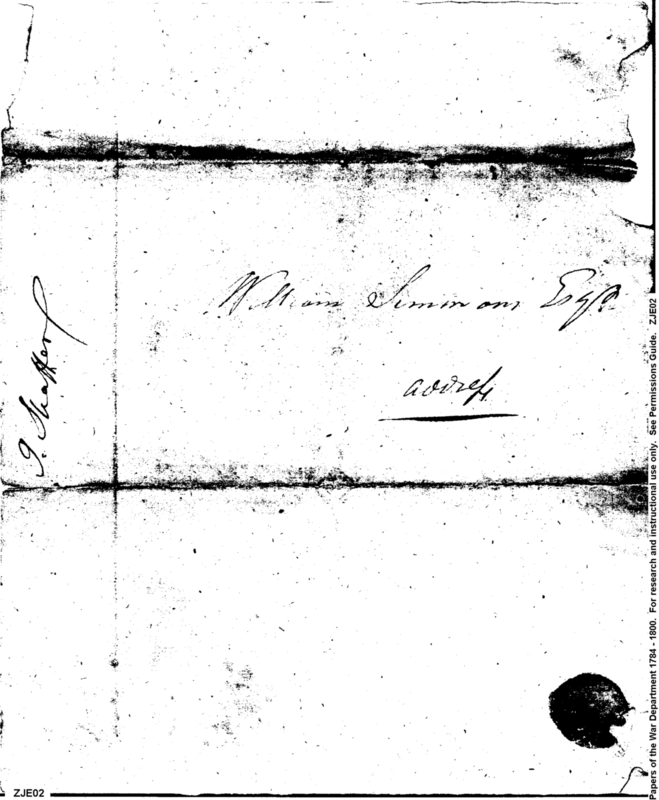 William Simmons Esqr.
address
J. Shaffer
Papers of the War Department 1784 - 1800. For research and instructional use only. See Permissions Guide. ZJE02
ZJE02